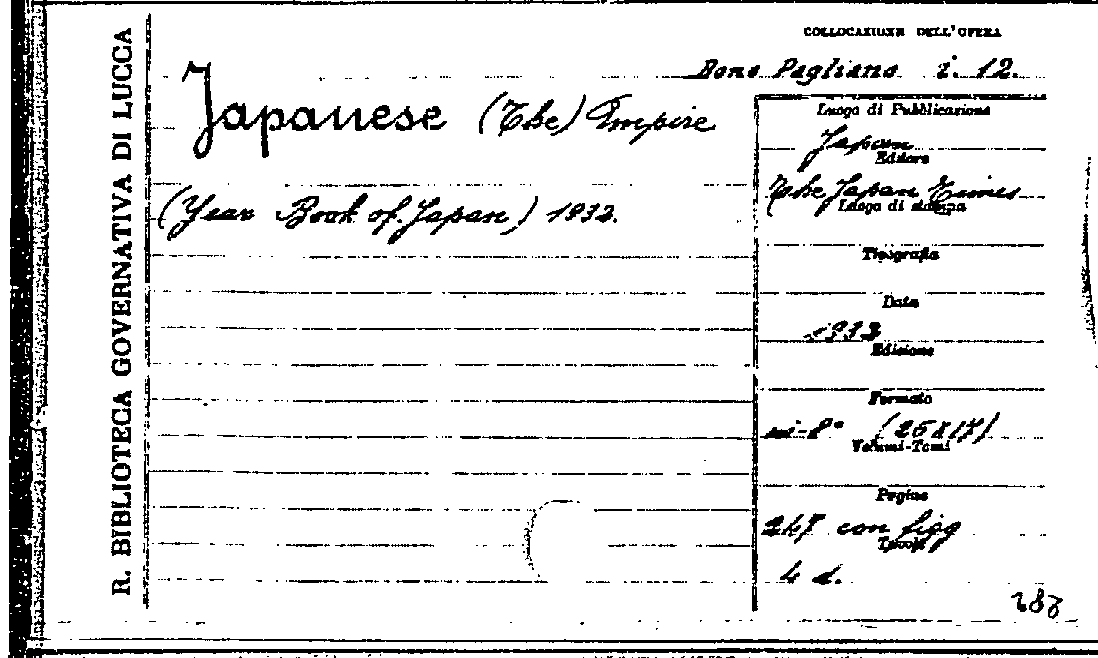 R. BIBLIOTECA GOVERNATIVA DI LUCCA
COLLOCAZIONE DELL'OPERA
Dono Pagliano i. 12.
Japanese (The) Empire
(Year Book of Japan) 1932.
Luogo di Pubblicazione
Japan
Editore
The Japan Times
Luogo di stampa
Tipografia
Data
1933
Edizione
Formato
in-8° (26x17)
Volumi-Tomi
Pagine
247 con figg
Tavole
4 d.